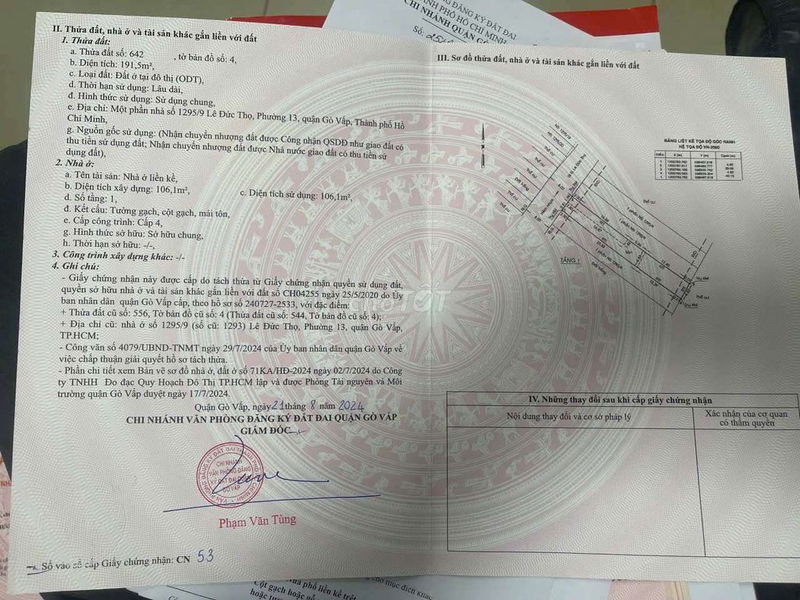 ĐĂNG KÝ ĐẤT ĐAI
PHỐ HỒ CHÍ MINH
CHI NHÁNH QUẬN GÒ
Số:
II. Thửa đất, nhà ở và tài sản khác gắn liền với đất
1. Thửa đất:
a. Thửa đất số: 642 , tờ bản đồ số: 4,
b. Diện tích: 191,5m²,
c. Loại đất: Đất ở tại đô thị (ODT),
d. Thời hạn sử dụng: Lâu dài,
đ. Hình thức sử dụng: Sử dụng chung,
e. Địa chỉ: Một phần nhà số 1295/9 Lê Đức Thọ, Phường 13, quận Gò Vấp, Thành phố Hồ
Chí Minh,
g. Nguồn gốc sử dụng: (Nhận chuyển nhượng đất được Công nhận QSDĐ như giao đất có
thu tiền sử dụng đất; Nhận chuyển nhượng đất được Nhà nước giao đất có thu tiền sử
dụng đất),
2. Nhà ở:
a. Tên tài sản: Nhà ở liền kề,
b. Diện tích xây dựng: 106,1m², c. Diện tích sử dụng: 106,1m²,
d. Số tầng: 1,
đ. Kết cấu: Tường gạch, cột gạch, mái tôn,
e. Cấp công trình: Cấp 4,
g. Hình thức sở hữu: Sở hữu chung,
h. Thời hạn sở hữu: -/-,
3. Công trình xây dựng khác: -/-
4. Ghi chú:
- Giấy chứng nhận này được cấp do tách thửa từ Giấy chứng nhận quyền sử dụng đất,
quyền sở hữu nhà ở và tài sản khác gắn liền với đất số CH04255 ngày 25/5/2020 do Ủy
ban nhân dân quận Gò Vấp cấp, theo hồ sơ số 240727-2533, với đặc điểm:
+ Thửa đất cũ số: 556, Tờ bản đồ cũ số: 4 (Thửa đất cũ số: 544, Tờ bản đồ cũ số: 4);
+ Địa chỉ cũ: nhà ở số 1295/9 (số cũ: 1293) Lê Đức Thọ, Phường 13, quận Gò Vấp,
TP.HCM;
- Công văn số 4079/UBND-TNMT ngày 29/7/2024 của Ủy ban nhân dân quận Gò Vấp về
việc chấp thuận giải quyết hồ sơ tách thửa.
- Phần chi tiết xem Bản vẽ sơ đồ nhà ở, đất ở số 71KA/HĐ-2024 ngày 02/7/2024 do Công
ty TNHH Đo đạc Quy Hoạch Đô Thị TP.HCM lập và được Phòng Tài nguyên và Môi
trường quận Gò Vấp duyệt ngày 17/7/2024.
Quận Gò Vấp, ngày 21 tháng 8 năm 2024
CHI NHÁNH VĂN PHÒNG ĐĂNG KÝ ĐẤT ĐAI QUẬN GÒ VẤP
GIÁM ĐỐC
CHI NHÁNH
VĂN PHÒNG ĐĂNG
KÝ ĐẤT ĐAI
GÒ VẤP
Phạm Văn Tùng
Số vào sổ cấp Giấy chứng nhận: CN 53
III. Sơ đồ thửa đất, nhà ở và tài sản khác gắn liền với đất
BẢNG LIỆT KÊ TỌA ĐỘ GÓC RANH
HỆ TỌA ĐỘ VN-2000
TẦNG 1
IV. Những thay đổi sau khi cấp giấy chứng nhận
Nội dung thay đổi và cơ sở pháp lý
Xác nhận của cơ quan
có thẩm quyền